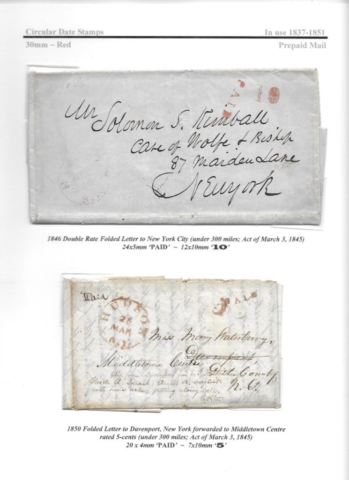 Circular Date Stamps
In use 1837-1851
30mm ~ Red
Prepaid Mail
PAID
10
Mr Solomon S. Kimball
Care of Wolfe & Bishop
87 Maiden Lane
New York
1846 Double Rate Folded Letter to New York City (under 300 miles; Act of March 3, 1845)
24x5mm 'PAID' ~ 12x10mm '10'
HUDSON
26
MAR
N.Y.
PAID
5
Miss Mary Waterbury,
Middletown Centre
Del. County
N.Y.
1850 Folded Letter to Davenport, New York forwarded to Middletown Centre
rated 5-cents (under 300 miles; Act of March 3, 1845)
20 x 4mm 'PAID' ~ 7x10mm '5'